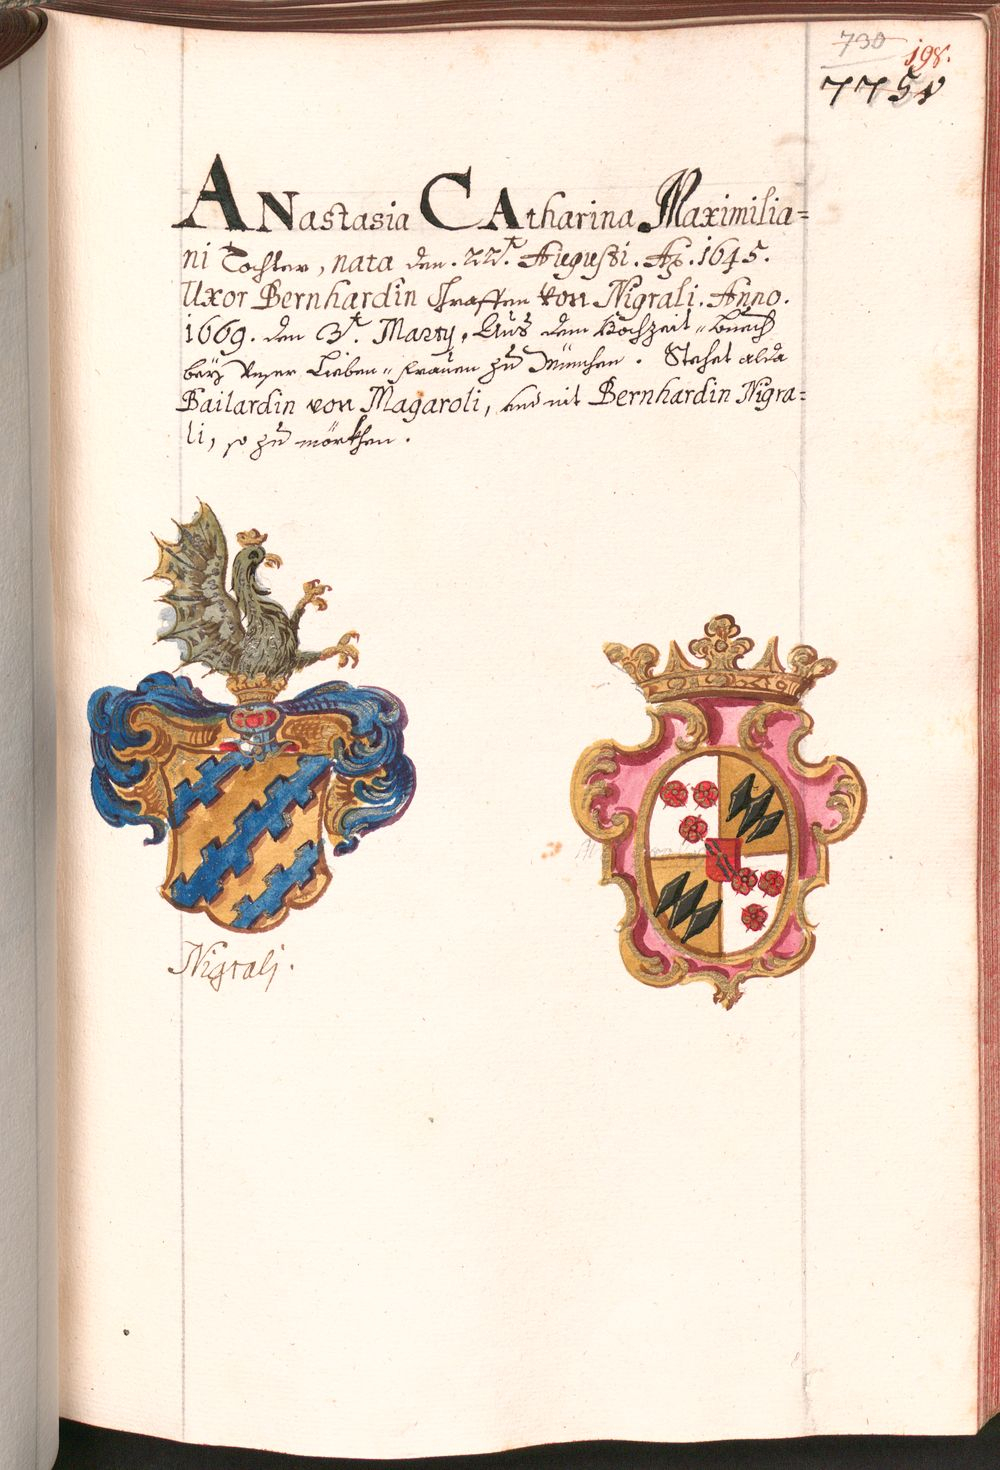 730
198.
775v
ANastasia CAtharina Maximilia=
ni Tochter, nata den. 22t. Augusti. Ao. 1645.
Uxor Bernhardin Graffen von Nigrali. Anno.
1669. den 3t. Marty, Aus dem Hochzeit=buech
bey Unser Lieben=frauen zu München. Stehet alda
Bailardin von Magaroli, und nit Bernhardin Nigra=
li, so zu mörkhen.
Nigralj.